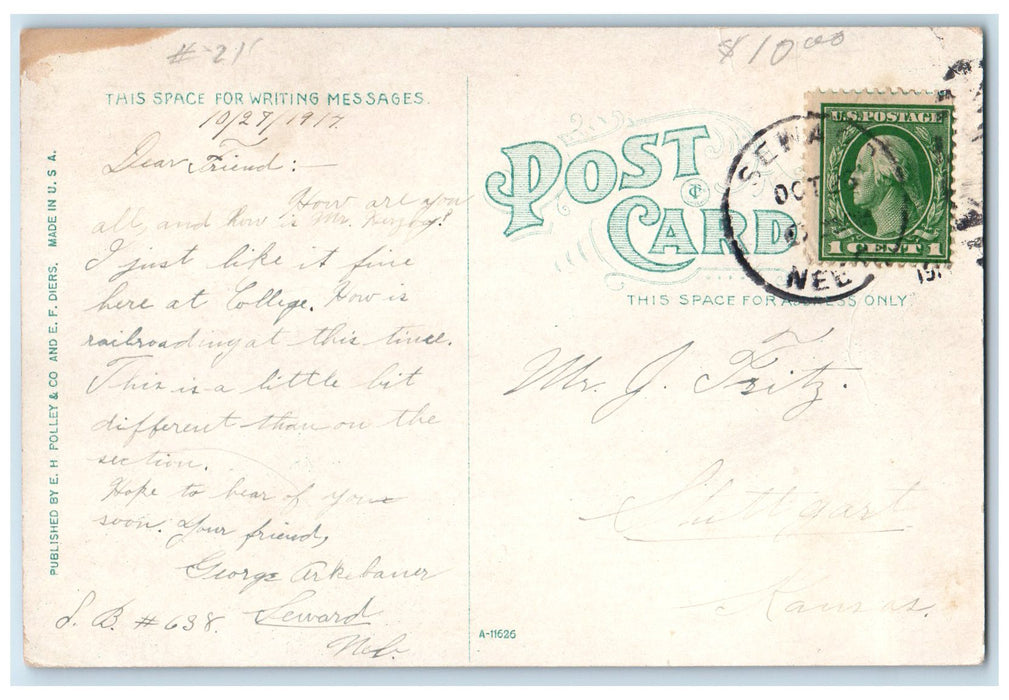 # 21
$10.00
THIS SPACE FOR WRITING MESSAGES.
10/27/1917.
Dear Friend:—
How are you
all, and how is Mr.
I just like it fine
here at College. How is
railroading at this time.
This is a little bit
different than on the
section.
Hope to hear of you
soon. Your friend,
George Arkebauer
S. B. #638. Seward
Neb.
PUBLISHED BY E. H. POLLEY & CO AND E. F. DIERS. MADE IN U S A.
A-11626
POST
CARD
U.S. POSTAGE
1 CENT 1
SEWA
OCT
NEB
191
THIS SPACE FOR ADDRESS ONLY
Mr. J. Fritz.
Stuttgart
Kansas.